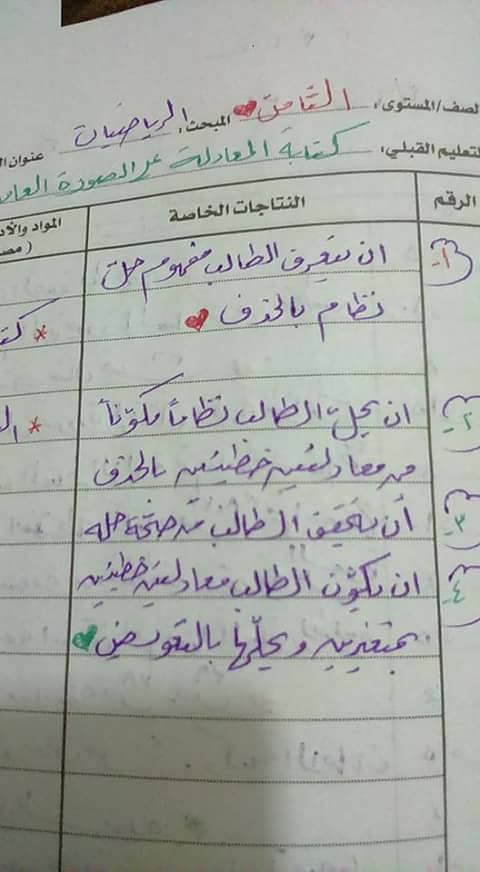 الصف/المستوى: الثامن المبحث: الرياضيات عنوان
التعليم القبلي: كتابة المعادلة على الصورة العا
الرقم النتاجات الخاصة المواد والأد
١- ان يتعرف الطالب مفهوم حل
نظام بالحذف
* كت
٢- ان يحل الطالب نظاماً مكوّناً * ال
من معادلتين خطيتين بالحذف
٣- أن يتحقق الطالب من صحة حله
٤- ان يكوّن الطالب معادلتين خطيتين
بمتغيرين ويحلّها بالتعويض